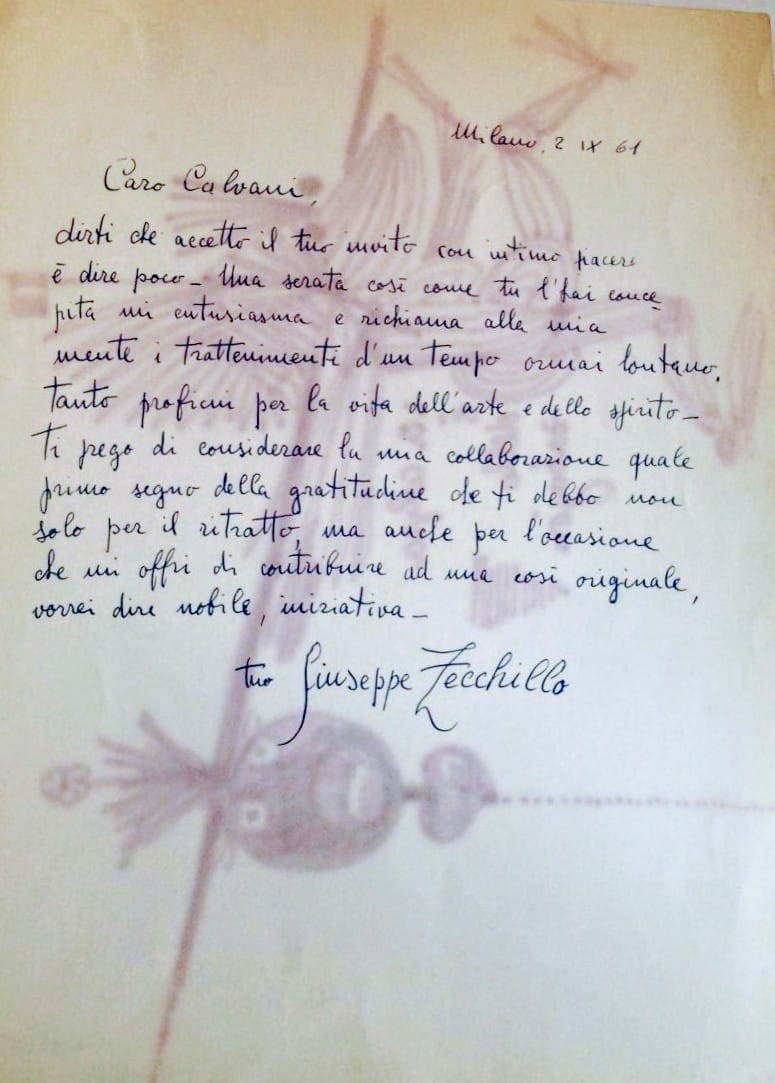 Milano, 2 IX 61
Caro Calvani,
dirti che accetto il tuo invito con intimo piacere
è dire poco - Una serata così come tu l'hai conce
pita mi entusiasma e richiama alla mia
mente i trattenimenti d'un tempo ormai lontano,
tanto proficui per la vita dell'arte e dello spirito -
Ti prego di considerare la mia collaborazione quale
primo segno della gratitudine che ti debbo non
solo per il ritratto, ma anche per l'occasione
che mi offri di contribuire ad una così originale,
vorrei dire nobile, iniziativa -
tuo Giuseppe Zecchillo